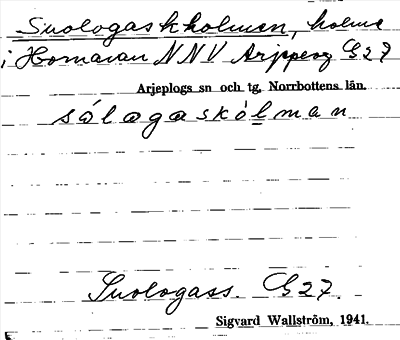 Suologaskholmen, holme
i Hornavan NNV Arjeplog G27
Arjeplogs sn och tg, Norrbottens län.
sálagaskålman
Suologass. G27.
Sigvard Wallström, 1941.